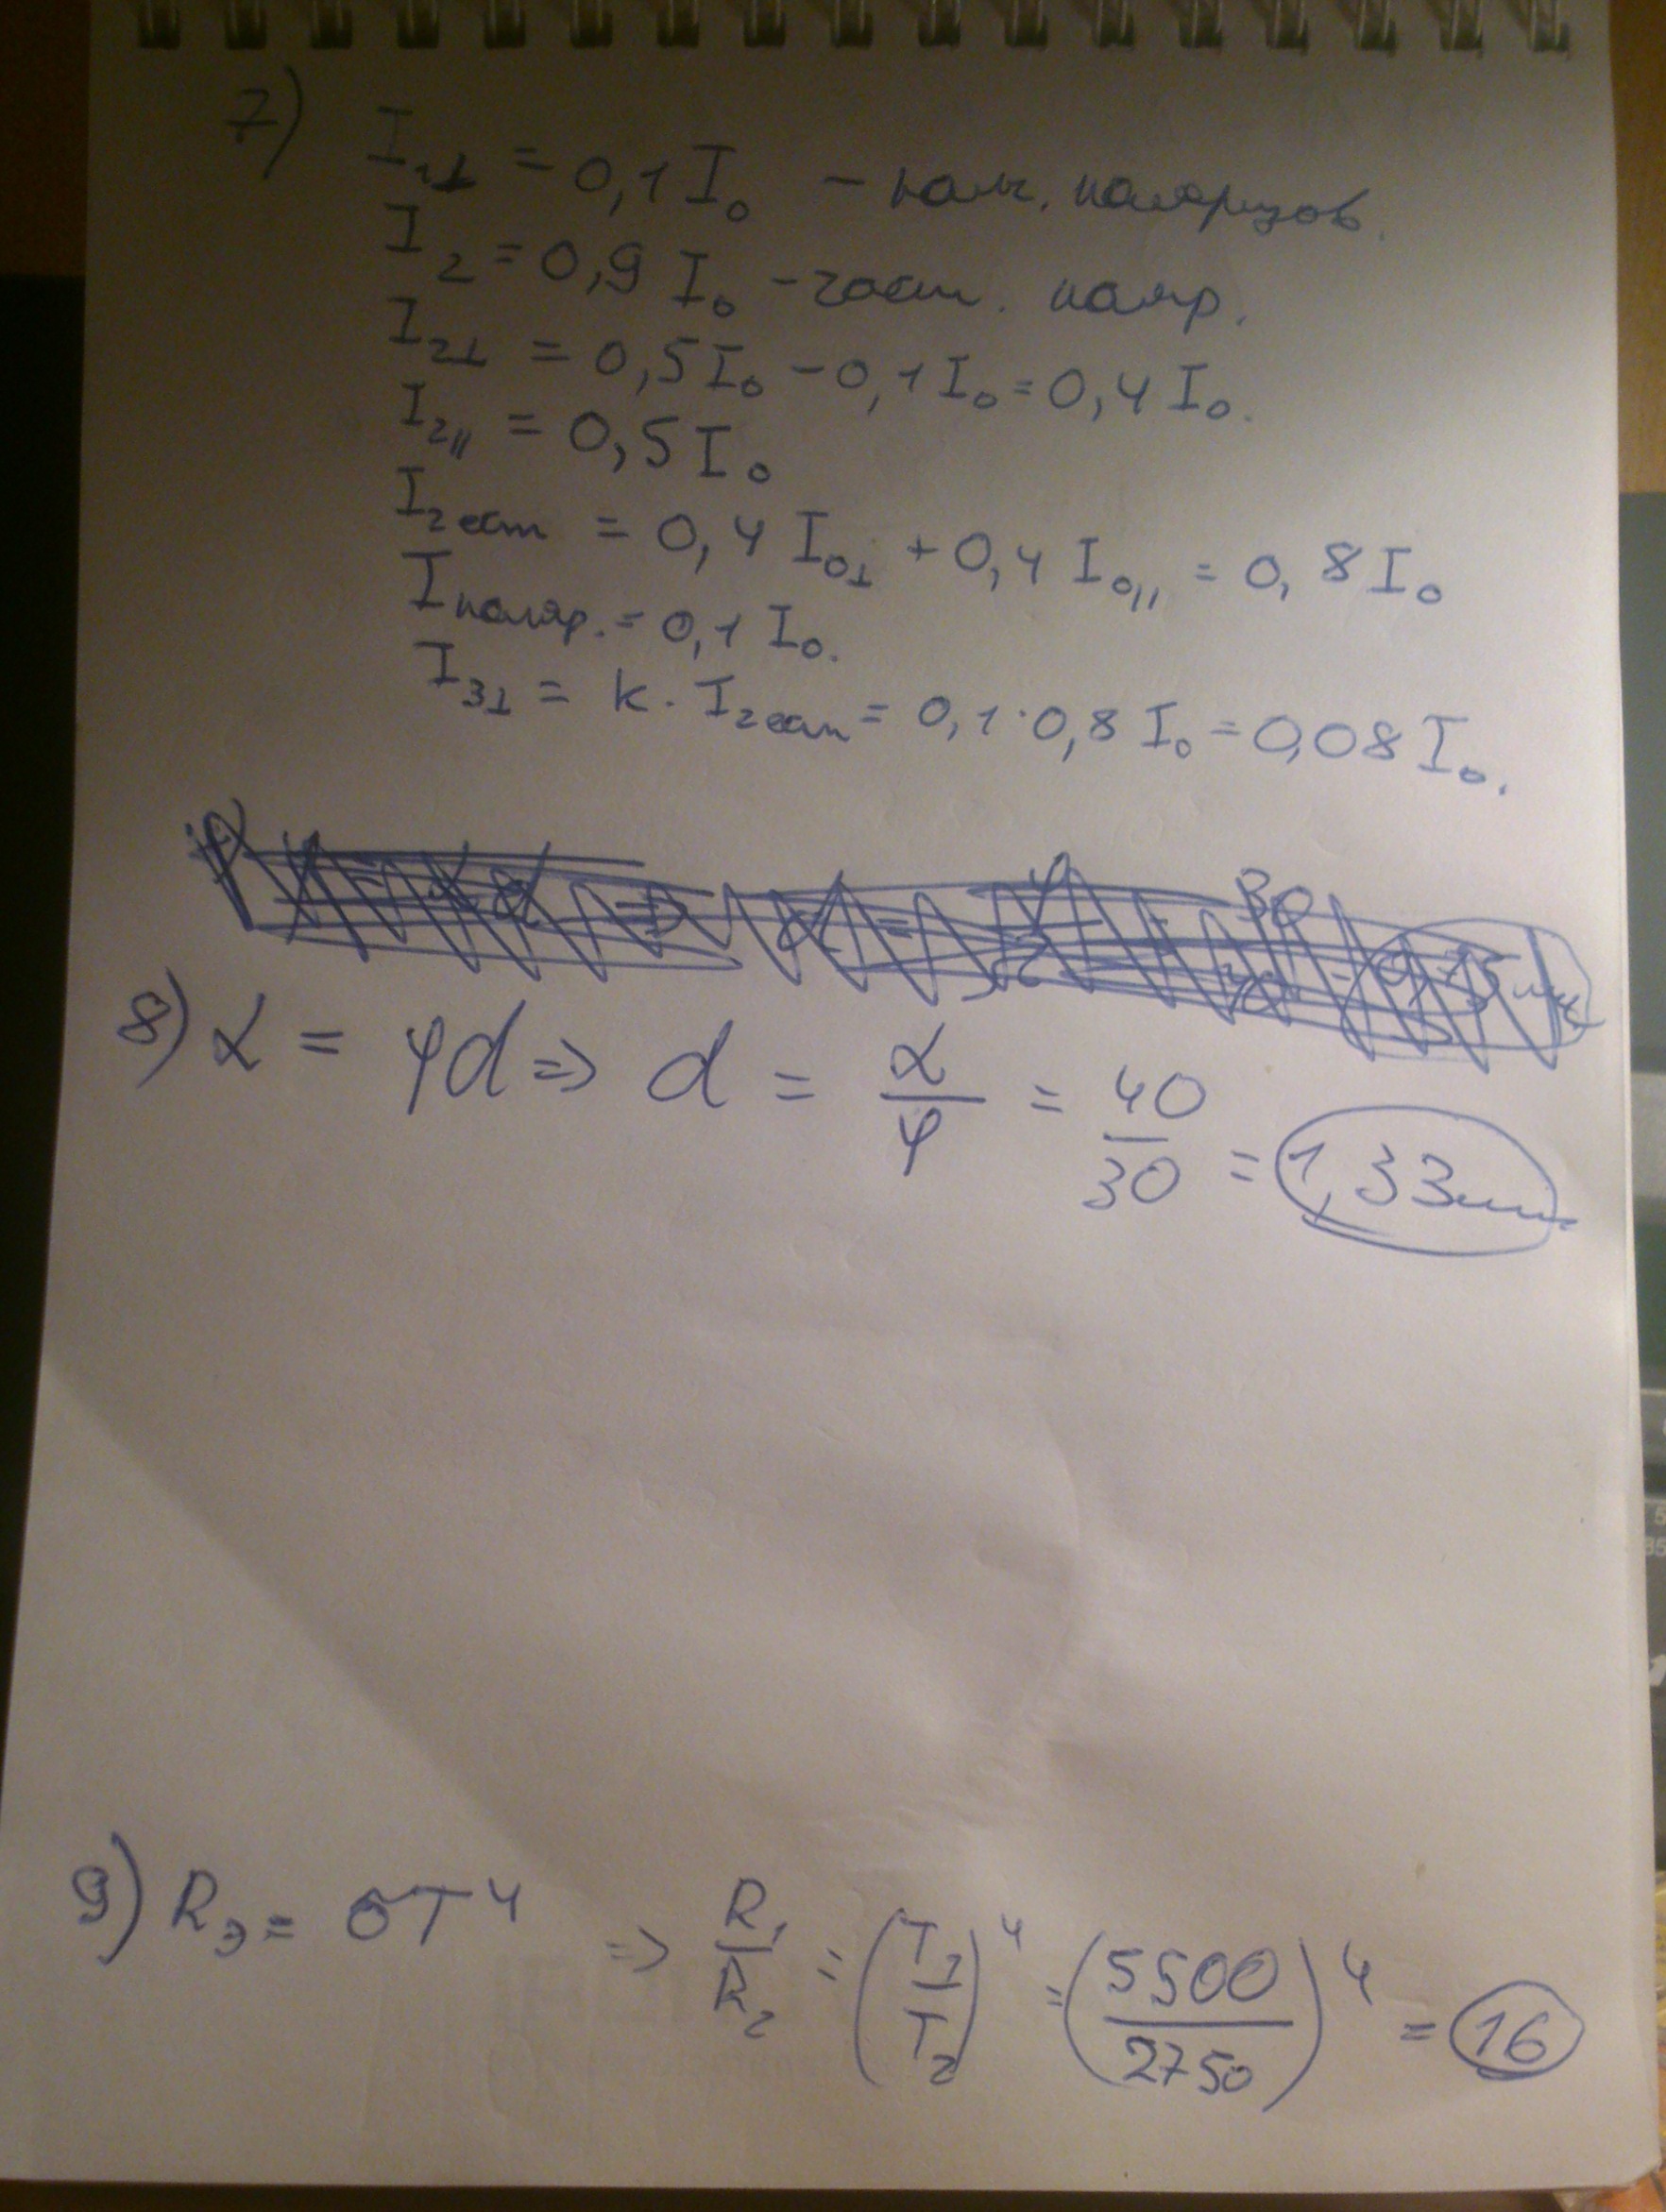 7) I₁⊥ = 0,1 I₀ – полн. поляризов.
I₂ = 0,9 I₀ – част. поляр.
I₂⊥ = 0,5 I₀ – 0,1 I₀ = 0,4 I₀.
I₂∥ = 0,5 I₀
I₂ ест = 0,4 I₀⊥ + 0,4 I₀∥ = 0,8 I₀
Iполяр. = 0,1 I₀.
I₃⊥ = k · I₂ ест = 0,1 · 0,8 I₀ = 0,08 I₀.
8) α = φd => d = α/φ = 40/30 = 1,33мм
9) Rэ = σT⁴ => R₁/R₂ = (T₁/T₂)⁴ = (5500/2750)⁴ = 16